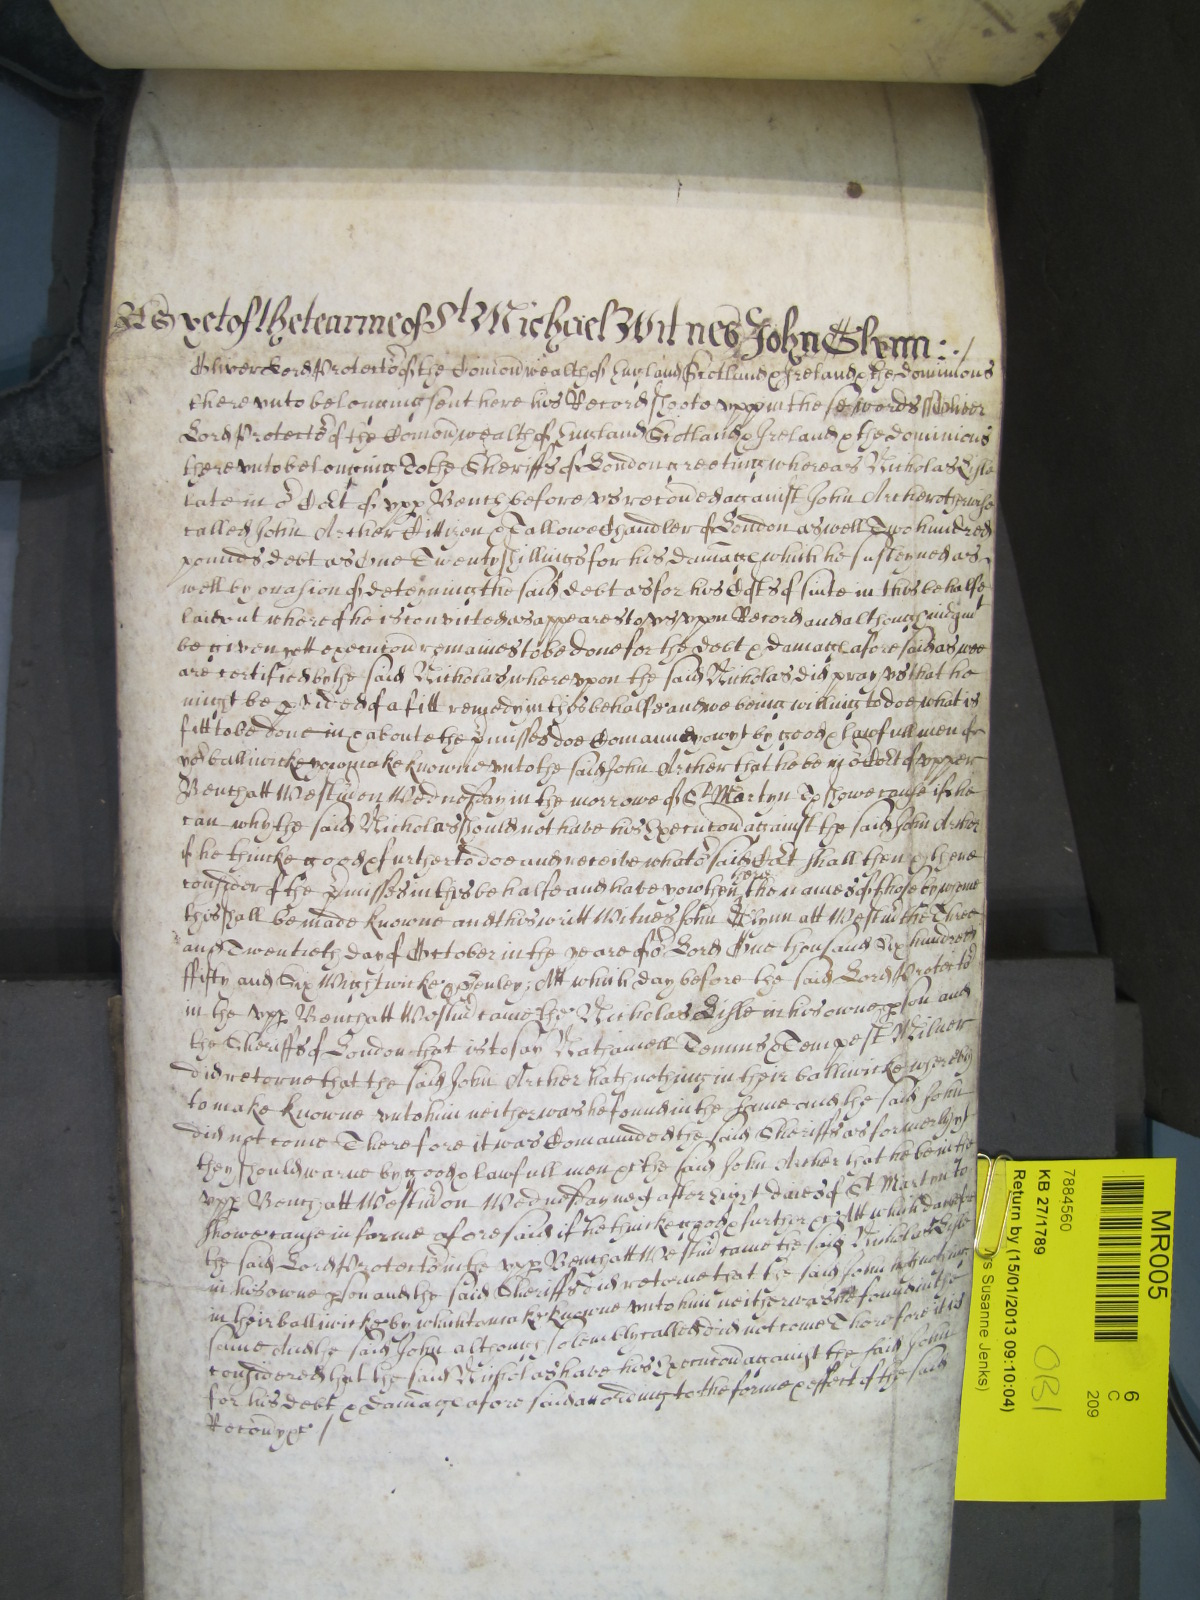 As yet of the tearme of St Michael Witnes John Glynn :./
Oliver Lord Protector of the Comonwealth of England Scotland & Ireland & the dominions
there unto belonging sent here his Record shooto upp in the se words ss Oliver
Lord Protector of the Comonwealth of England Scotland & Ireland & the dominions
there unto belonging To the Sheriffs of London greeting whereas Nicholas Lisle
late in or Cort of upp Bench before us recoved against John Archer otherwise
called John Archer Cittizen & Tallowe Chandler of London aswell Two hundred
pounds debt as One Twenty shillings for his damage which he susteyned as
well by occasion of deteyning the said debt as for his Costs of suite in this behalfe
laid out whereof he is convicted as appeares to us upon Record and although Judgmt
be given yett execucon remaines to be done for the debt & damage aforesaid as wee
are certified by the said Nicholas whereupon the said Nicholas did pray us that he
might be pvided of a fitt remedy in this behalfe and we being willing to doe what is
fitt to be done in & about the pmisses doe Comaund yow yt by good & lawfull men of
yor balliwicke yow make knowne unto the said John Archer that he be in or Cort of upper
Bench att Westmon Wednesday in the morrowe of St Martyn To showe cause if he
can why the said Nicholas should not have his Execucon against the said John Archer
if he thincke good & further to doe and receive what or said Cort shall then & there
consider of the pmisses in this behalfe and have yow then here the names of those by whome
this shall be made knowne and this writt Witnes John Glynn att Westmr the Three
and Twentieth day of October in the yeare of or Lord One thousand Six hundred
ffifty and Six Wightwicke & Henley; Att which day before the said Lord Protector
in the upp Bench att Westmr came the Nicholas Lisle in his owne pson and
the Sheriffs of London that is to say Nathaniell Temms & Tempest Milner
did retorne that the said John Archer hath nothing in their balliwicke whereby
to make knowne unto him neither was he found in the same and the said John
did not come Therefore it was Comaunded the said Sheriffs as formerly yt
they should warne by good & lawfull men &c the said John Archer that he be in the
upp Bench att Westmr on Wednesday next after Eight daies of St Martyn to
showe cause in forme aforesaid if he thincke good & further &c Att which day before
the said Lord Protector in the upp Bench att Westmr came the said Nicholas Lisle
in his owne pson and the said Sheriffs did retorne that the said John hath nothing
in their balliwicke by which to make knowne unto him neither was he found in the
same And the said John although solemnly called did not come Therefore it is
considered that the said Nicholas have his Execucon against the said John
for his debt & damage aforesaid according to the forme & effect of the said
Recovy &c /
MR005
6
C
209
7884560
KB 27/1789
OBI
Return by (15/01/2013 09:10:04)
s Susanne Jenks)